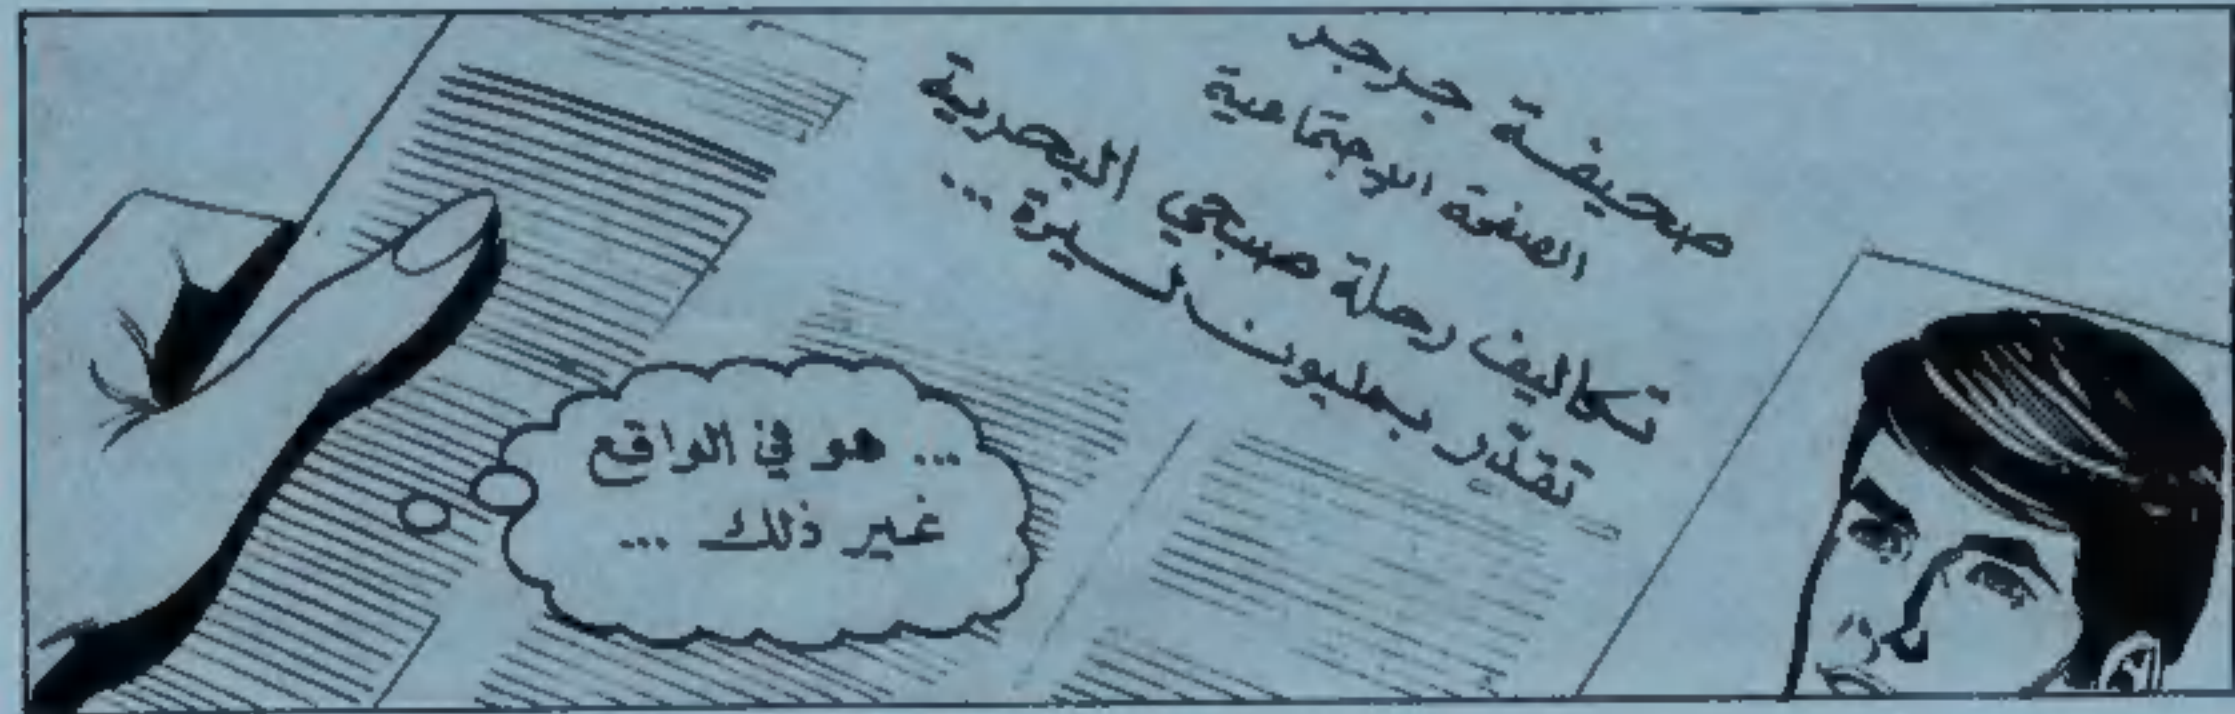 صحيفة جرجر
الصفحة الاجتماعية
تكاليف رحلة صبحي البحرية
تقدّر بمليون ليرة ...
... هو في الواقع
غير ذلك ...